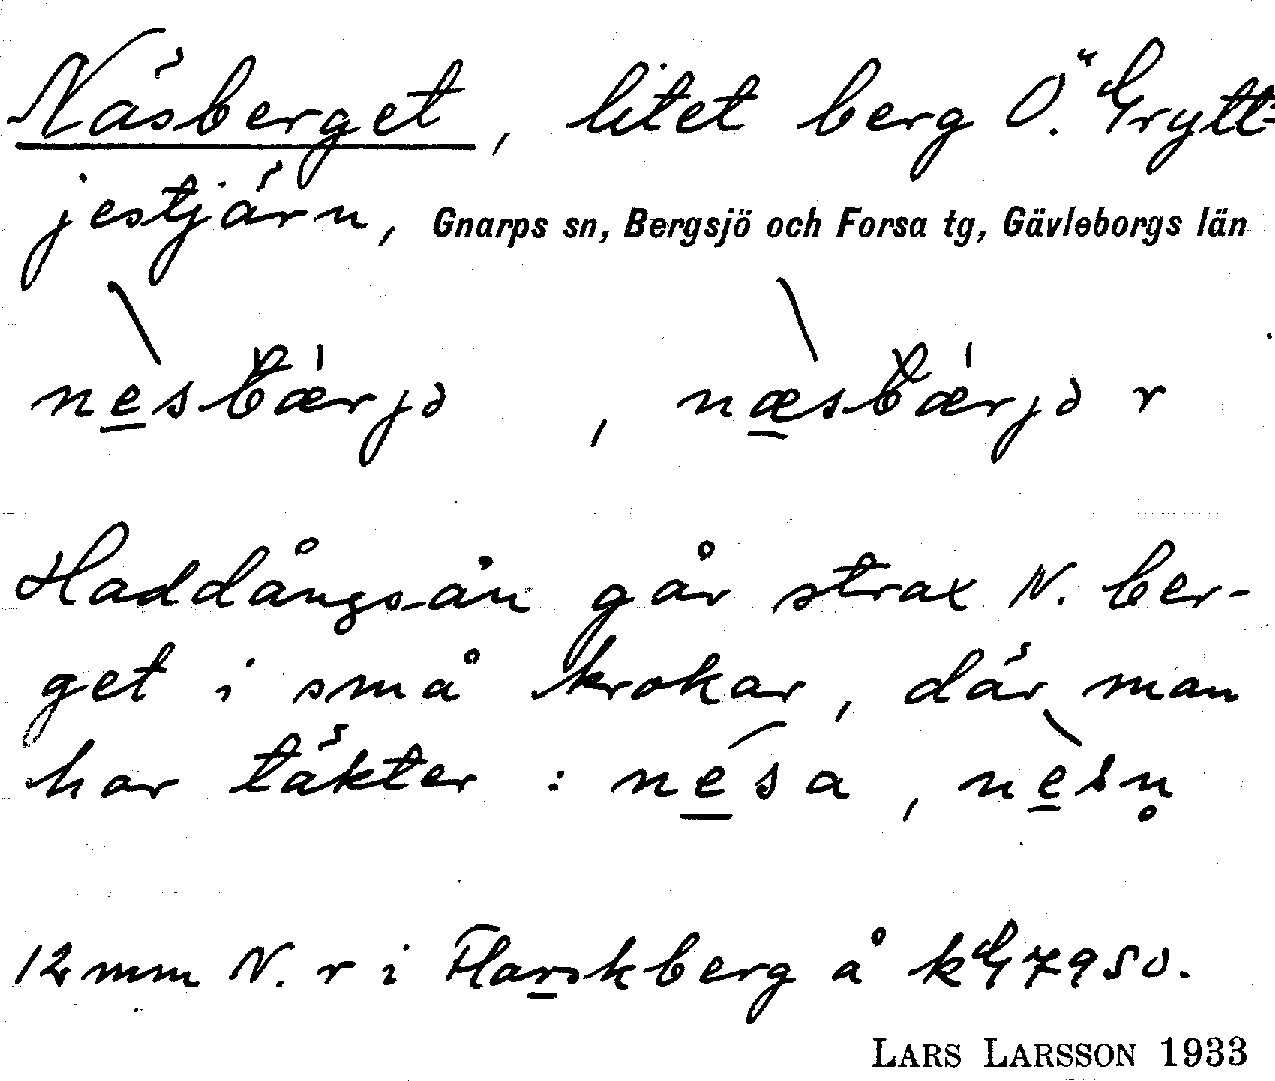 Näsberget, litet berg Ö. Grytt-
jestjärn, Gnarps sn, Bergsjö och Forsa tg, Gävleborgs län
nesbærjə, næsbærjə r
Haddångsån går strax N. ber-
get i små krokar, där man
har täkter: nesa, nesn̥
12 mm N. r i Harskberg å kG 7950.
LARS LARSSON 1933